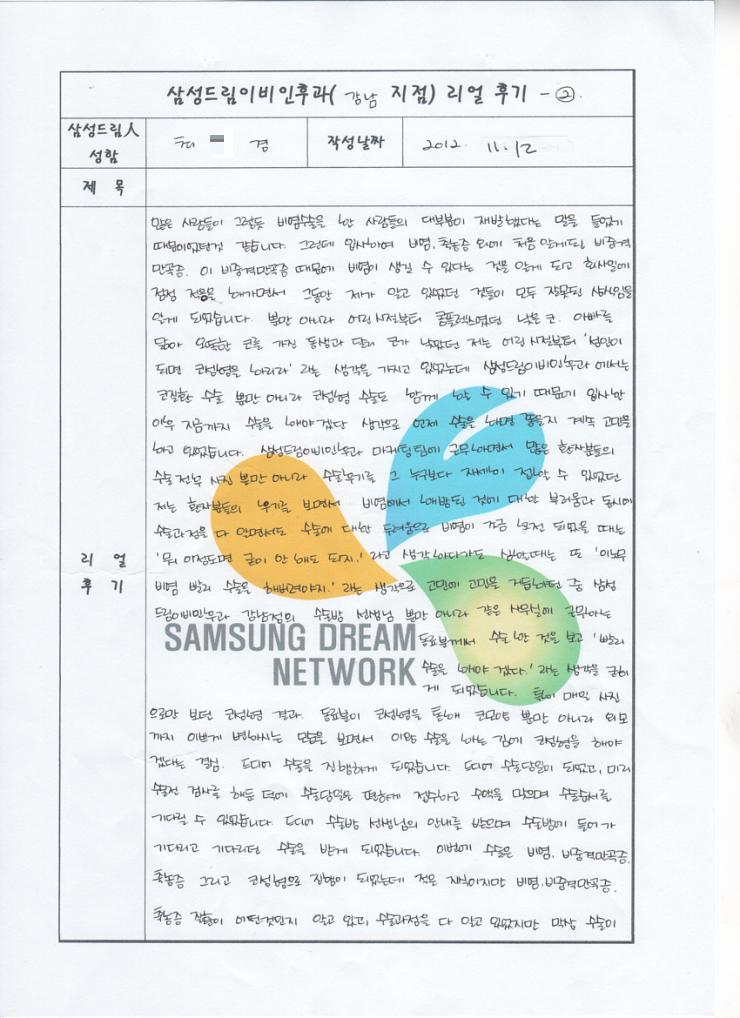 삼성드림이비인후과( 강남 지점) 리얼 후기 - ②.
삼성드림人
성함
최 경
작성날짜
2012. 11. 12
제 목
리 얼
후 기
많은 사람들이 그렇듯 비염수술을 한 사람들의 대부분이 재발했다는 말을 들었기
때문이었던것 같습니다. 그런데 입사하여 비염, 축농증 외에 처음 알게된 비중격
만곡증. 이 비중격만곡증 때문에 비염이 생길 수 있다는 것을 알게 되고 회사일에
점점 적응을 해가면서 그동안 제가 알고 있었던 것들이 모두 잘못된 상식임을
알게 되었습니다. 뿐만 아니라 어린시절부터 콤플렉스였던 낮은 코. 아빠를
닮아 오똑한 코를 가진 동생과 달리 코가 낮았던 저는 어린 시절부터 '성인이
되면 코성형을 하리라' 라는 생각을 가지고 있었는데 삼성드림이비인후과에서는
코질환 수술 뿐만 아니라 코성형 수술도 함께 할 수 있기 때문에 입사한
이후 지금까지 수술을 해야겠다 생각으로 언제 수술을 하면 좋을지 계속 고민을
하고 있었습니다. 삼성드림이비인후과 마케팅팀에 근무하면서 많은 환자분들의
수술 전후 사진 뿐만 아니라 수술후기를 그 누구보다 자세히 접할 수 있었던
저는 환자분들의 후기를 보면서 비염에서 해방된 것에 대한 부러움과 동시에
수술과정을 다 알면서도 수술에 대한 두려움으로 비염이 조금 호전 되었을 때는
'뭐 이정도면 굳이 안 해도 되지.' 라고 생각하다가도 심할때는 또 '이노무
비염 빨리 수술을 해버려야지.' 라는 생각으로 고민에 고민을 거듭하던 중 삼성
드림이비인후과 강남점의 수술방 선생님 뿐만 아니라 같은 사무실에 근무하는
동료분께서 수술한 것을 보고 '빨리
수술을 해야 겠다.' 라는 생각을 굳히
게 되었습니다. 특히 매일 사진
으로만 보던 코성형 결과. 동료분이 코성형을 통해 코모양 뿐만 아니라 외모
까지 이쁘게 변하시는 모습을 보면서 이왕 수술을 하는 김에 코성형을 해야
겠다는 결심. 드디어 수술을 진행하게 되었습니다. 드디어 수술당일이 되었고, 미리
수술전 검사를 해둔 덕에 수술당일은 편하게 접수하고 수액을 맞으며 수술순서를
기다릴 수 있었습니다. 드디어 수술방 선생님의 안내를 받으며 수술방에 들어가
기다리고 기다리던 수술을 받게 되었습니다. 이번에 수술은 비염, 비중격만곡증,
축농증 그리고 코성형으로 진행이 되었는데 적은 지식이지만 비염, 비중격만곡증,
축농증 질환이 어떤것인지 알고 있고, 수술과정을 다 알고 있었지만 막상 수술이
SAMSUNG DREAM
NETWORK